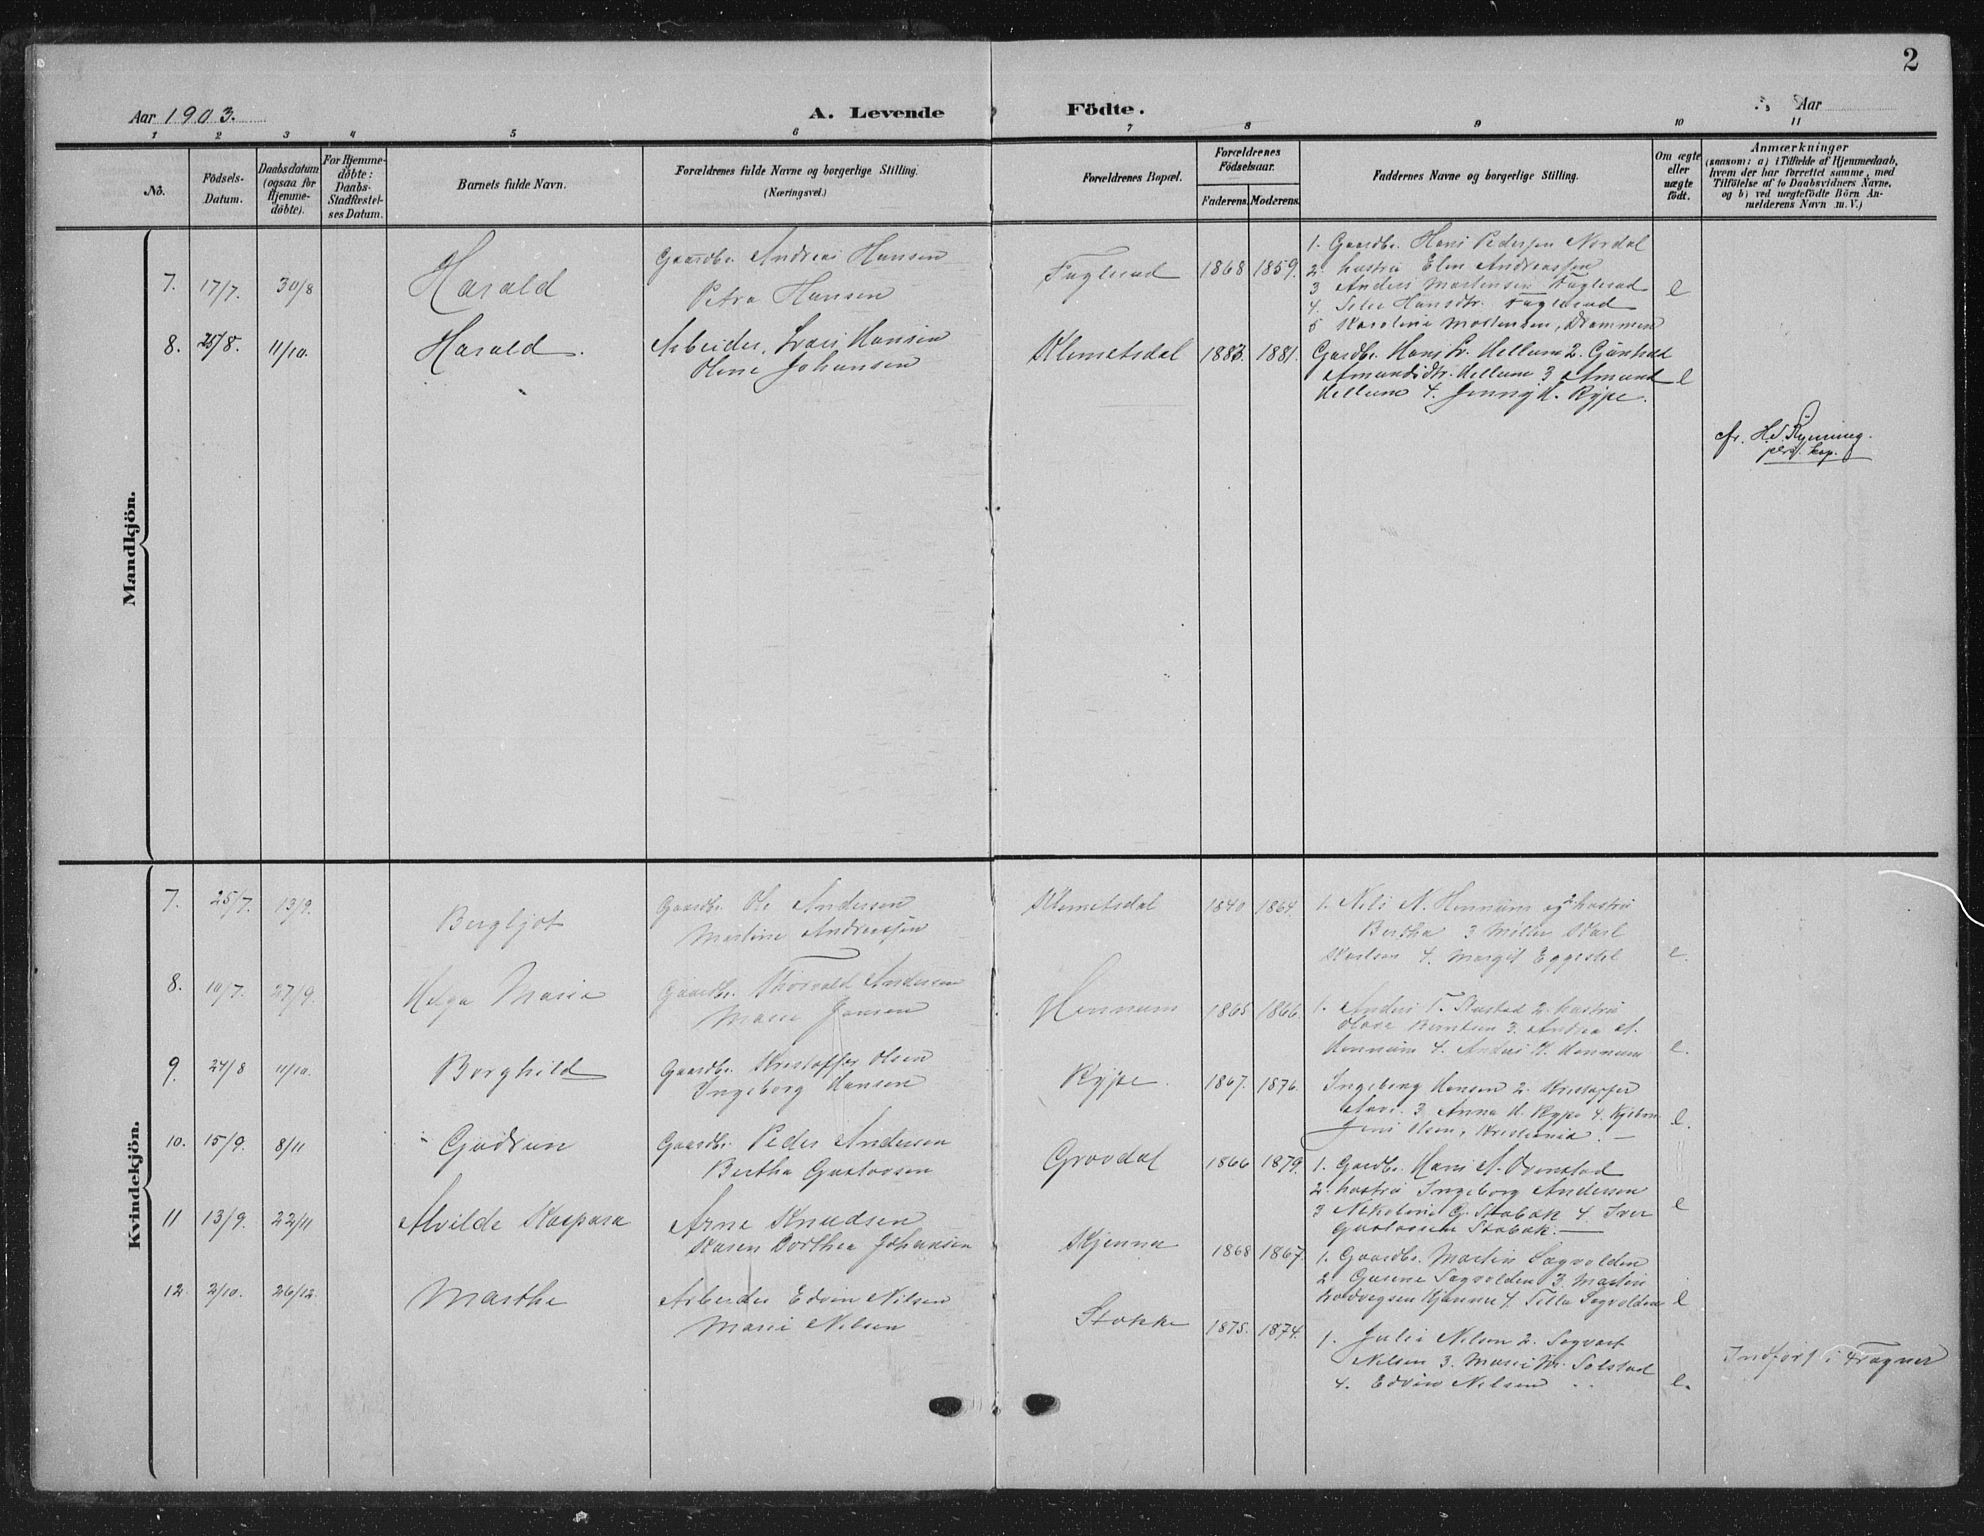 2
Aar 1903.
A. Levende Födte.
Aar
1 2 3 4 5 6 7 8 9 10 11
No.
Födsels-Datum.
Daabsdatum (ogsaa for Hjemme-döbte).
For Hjemme-döbte: Daabs-Stadfæstel-ses Datum.
Barnets fulde Navn.
Forældrenes fulde Navne og borgerlige Stilling.
(Næringsvei.)
Forældrenes Bopæl.
Forældrenes Födselsaar.
Faderens. Moderens.
Faddernes Navne og borgerlige Stilling.
Om ægte eller uægte födt.
Anmærkninger
(saasom: a) i Tilfælde af Hjemmedaab,
hvem der har forrettet samme, med
Tilföielse af to Daabsvidners Navne,
og b) ved uægtefödte Börn An-
melderens Navn m. V.)
Mandkjön.
7. 17/7. 30/8 Harald
Gaardbr. Andreas Hansen
Petra Hansen
Faglerud 1868 1859.
1. Gaardbr. Hans Pedersen Nordal
2. hustru Elen Andreassen
3 Anders Mortensen Faglerud
4. Hansdtr. Faglerud
5 Karoline Mortensen, Drammen
e
8. 25/8. 11/10. Harald.
Arbeider, Hansen
Oline Johansen
Klemetsdal 1883. 1881.
Gardbr. Hans Hellum 2.
Amundsdtr. Hellum 3 Amund
Hellum 4. Jenny H. Rype.
e
cfr. H. Rynning
pers. kap.
Kvindekjön.
7. 25/7. 13/9. Bergljot
Gaardbr. Ole Andersen
Martine Andreassen
Klemetsdal 1840 1864.
1. Nils A. Hennum og 2 hustru
Bertha 3 Möller Karl
Karlsen 4. Margit Eggestel
e.
8. 10/7. 27/9. Helga Marie
Gaardbr. Thorvald Andersen
Marie Jensen
Hennum 1865 1866.
1. Anders T. 2. hustru
Olave Berntsen 3. Andrea A.
Hennum 4. Anders H. Hennum
e.
9. 24/8 11/10. Borghild
Gaardbr. Kristoffer Olsen
Ingeborg Hansen
Rype. 1867. 1876.
Ingeborg Hansen 2. Kristoffer
Olsen. 3 Anna H. Rype 4.
Jens Olsen, Kristiania. —
e.
10. 15/9. 8/11 Gudrun
Gaardbr. Peder Andersen
Bertha Gustavsen
Grovdal 1866 1879.
1. Gardbr. Hans A.
2. hustru Ingeborg Andersen
3 Nikoline G. Stabæk 4. Iver
Gustavsen Stabæk. —
e
11 13/9. 22/11 Alvilde Kaspara
Arne Knudsen
Karen Dorthea Johansen
Skjenna 1868 1867.
1. Gaardbr. Martin Sagvolden
2. Gurine Sagvolden 3. Martin
Kjenne 4. Tilla Sagvolden
e
12. 2/10. 26/12. Marthe
Arbeider Edvin Nilsen
Marie Nilsen
Stokke 1875. 1874.
1. Julie Nilsen 2. Sigvart
Nilsen 3. Marie Solstad
4. Edvin Nilsen
e.
Indfört i Fragner